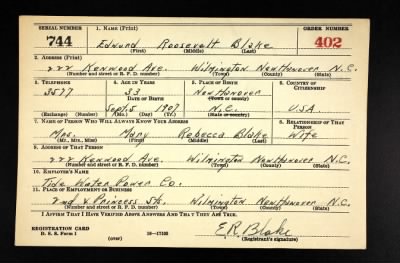 SERIAL NUMBER 1. NAME (Print) ORDER NUMBER
744 Edmund Roosevelt Blake 402
(First) (Middle) (Last)
2. ADDRESS (Print)
222 Kenwood Ave. Wilmington New Hanover N.C.
(Number and street or R. F. D. number) (Town) (County) (State)
3. TELEPHONE 4. AGE IN YEARS 5. PLACE OF BIRTH 6. COUNTRY OF CITIZENSHIP
3577 33 New Hanover
DATE OF BIRTH (Town or county)
Sept. 5 1907 N.C. U.S.A.
(Exchange) (Number) (Mo.) (Day) (Yr.) (State or country)
7. NAME OF PERSON WHO WILL ALWAYS KNOW YOUR ADDRESS 8. RELATIONSHIP OF THAT PERSON
Mrs. Mary Rebecca Blake Wife
(Mr., Mrs., Miss) (First) (Middle) (Last)
9. ADDRESS OF THAT PERSON
222 Kenwood Ave. Wilmington New Hanover N.C.
(Number and street or R. F. D. number) (Town) (County) (State)
10. EMPLOYER'S NAME
Tide Water Power Co.
11. PLACE OF EMPLOYMENT OR BUSINESS
2nd & Princess Sts. Wilmington New Hanover N.C.
(Number and street or R. F. D. number) (Town) (County) (State)
I AFFIRM THAT I HAVE VERIFIED ABOVE ANSWERS AND THAT THEY ARE TRUE.
REGISTRATION CARD
D. S. S. Form 1 (over) 16—17105 E.R. Blake
(Registrant's signature)